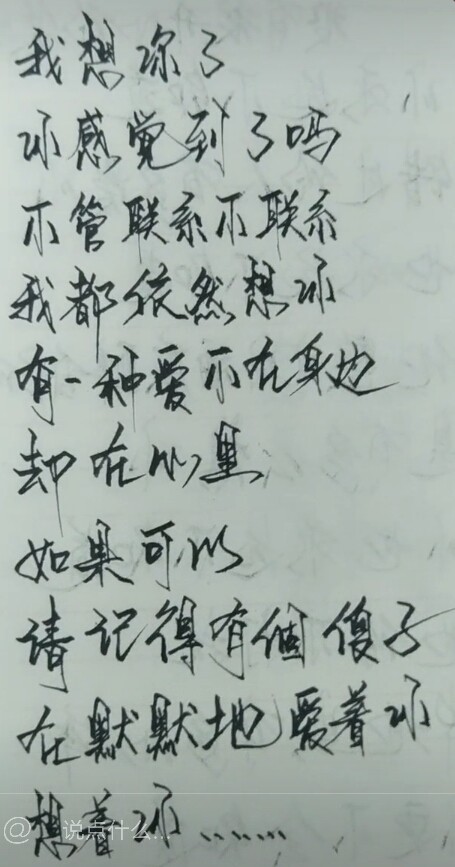 我想你了
你感觉到了吗
不管联系不联系
我都依然想你
有一种爱不在身边
却在心里
如果可以
请记得有個傻子
在默默地爱着你
想着你……
@ 说点什么...